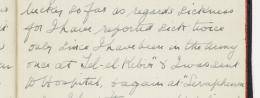 lucky so far as regards sickness
for I have reported sick twice
only since I have been in the army
once at "Tel-el-Kebir" & I was sent
to Hospital, & again at "Serapheum